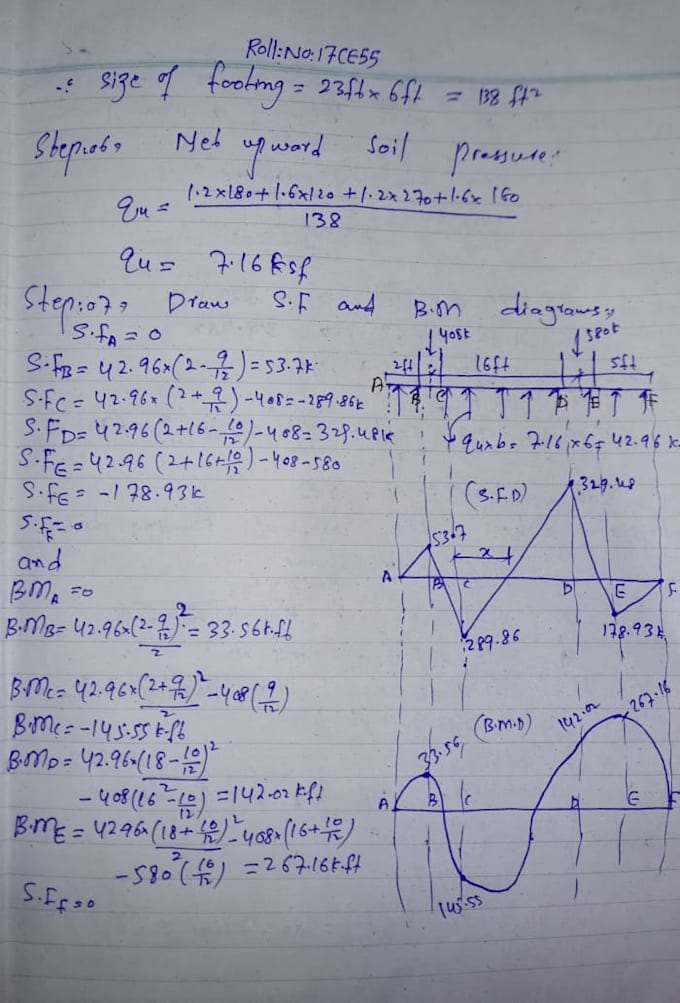 Roll:No:17CE55
∴ size of footing = 23ft x 6ft = 138 ft²
Step:06, Net upward Soil pressure:
qu = 1.2x180+1.6x120+1.2x270+1.6x160
138
qu = 7.16 ksf
Step:07, Draw S.F and B.M diagrams,
S.FA = 0
S.FB = 42.96x(2-9/12) = 53.7k
S.FC = 42.96x(2+9/12)-408 = -289.86k
S.FD = 42.96(2+16-10/12)-408 = 329.48k
S.FE = 42.96(2+16+10/12)-408-580
S.FE = -178.93k
S.FF = 0
and
BMA = 0
B.MB = 42.96x(2-9/12)²/2 = 33.56k.ft
B.MC = 42.96x(2+9/12)²/2 - 408(9/12)
B.MC = -145.55 k.ft
B.MD = 42.96x(18-10/12)²/2
-408(16-10/12) = 142.02 k.ft
B.ME = 42.96x(18+10/12)²/2 - 408x(16+10/12)
-580(10/12) = 267.16k.ft
S.FF = 0
408k 580k
2ft 16ft 5ft
A B C D E F
qu x b = 7.16 x 6 = 42.96 k
(S.F.D)
329.48
53.7
x
A B C D E F
289.86
178.93k
(B.M.D)
142.02
267.16
33.56
A B C D E F
145.55